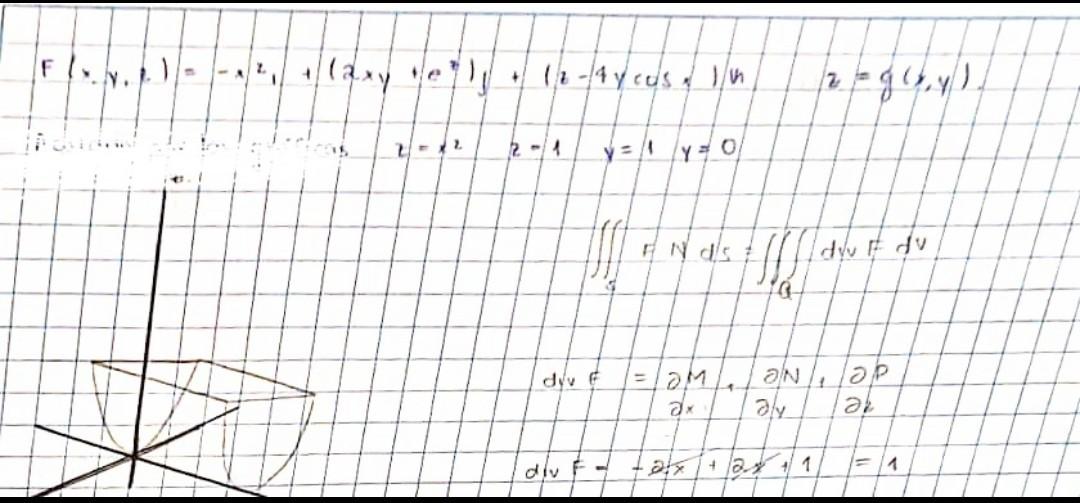 F(x, y, z) = -x²i + (2xy + e^z)j + (z - 4y cos x)k z = g(x, y).
z = x² z = 1 y = 1 y = 0
∬_S F N ds = ∭_Q div F dv
div F = ∂M/∂x + ∂N/∂y + ∂P/∂z
div F = -2x + 2x + 1 = 1